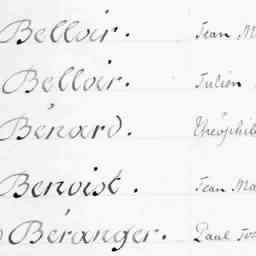 Belloir. Jean M
Belloir. Julien
Bénard. Théophil
Benoist. Jean Ma
Béranger. Paul